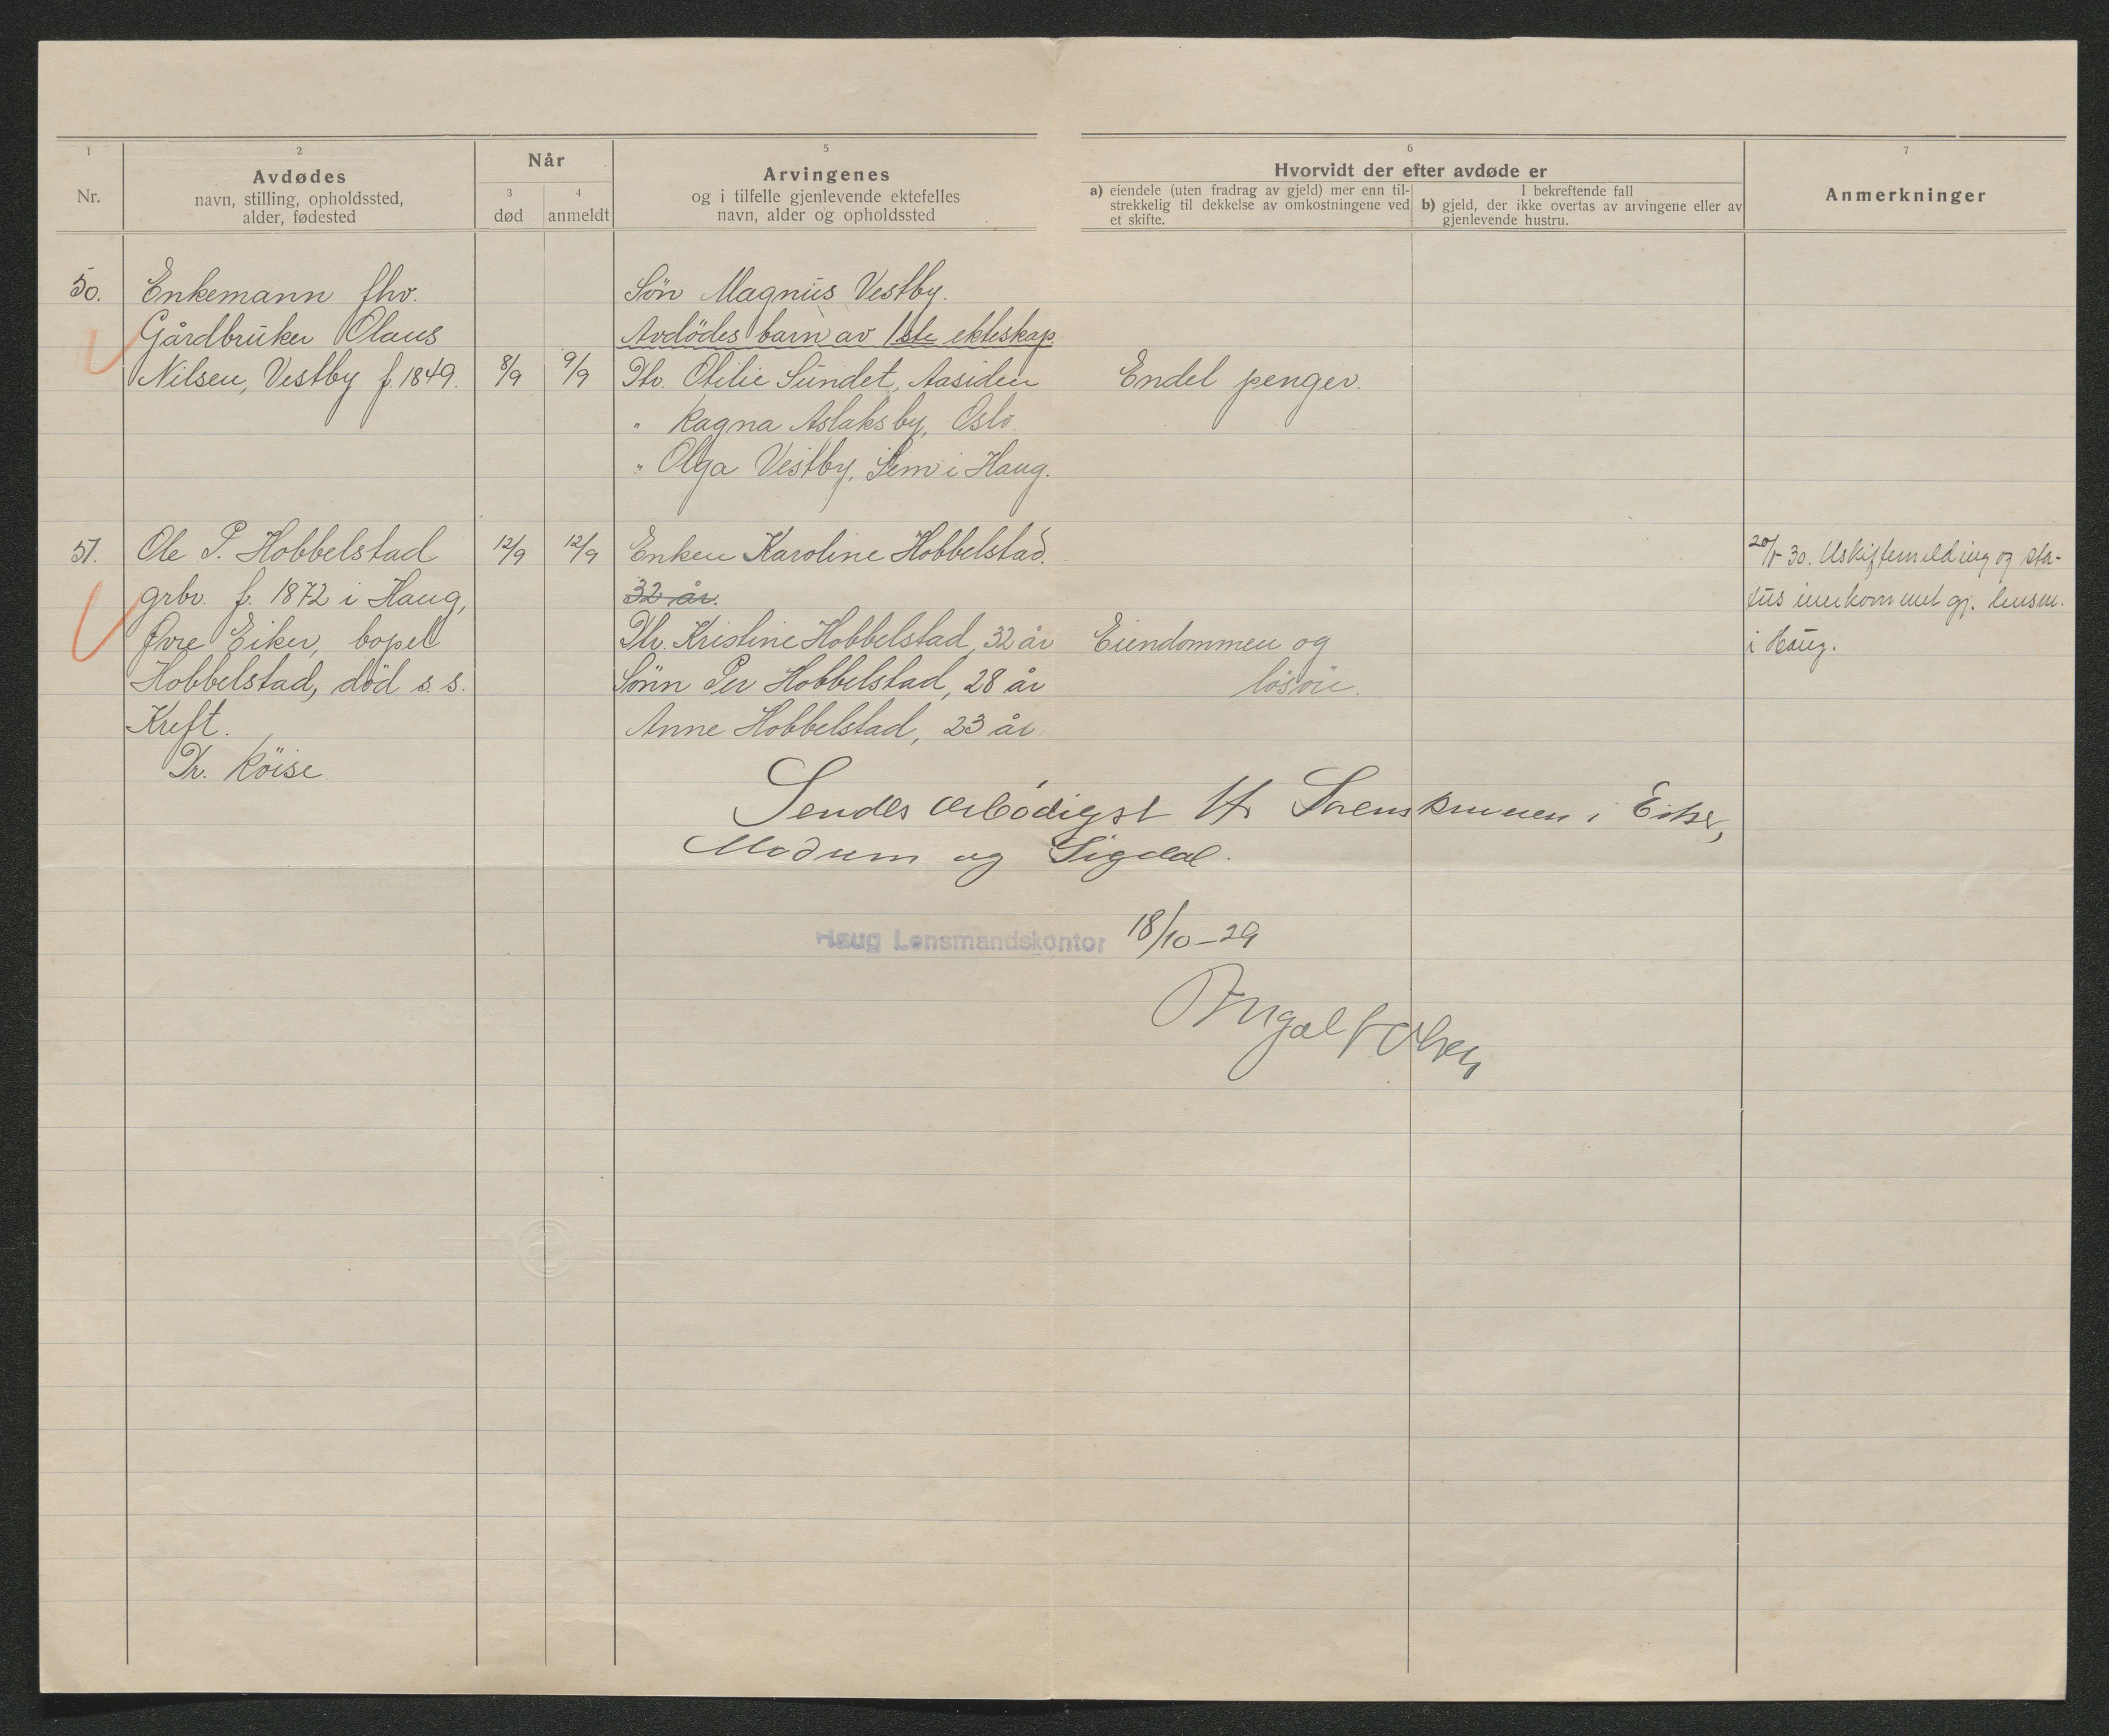 1
Nr.
2
Avdødes
navn, stilling, opholdssted,
alder, fødested
Når
3
død
4
anmeldt
5
Arvingenes
og i tilfelle gjenlevende ektefelles
navn, alder og opholdssted
6
Hvorvidt der efter avdøde er
a) eiendele (uten fradrag av gjeld) mer enn til-
strekkelig til dekkelse av omkostningene ved
et skifte.
I bekreftende fall
b) gjeld, der ikke overtas av arvingene eller av
gjenlevende hustru.
7
Anmerkninger
50.
Enkemann fhv.
Gårdbruker Olaus
Nilsen, Vestby f. 1849.
8/9
9/9
Søn Magnus Vestby.
Avdödes barn av 1ste ekteskap
Dtr. Otilie Sundet, Aasiden
" Ragna Aslaksby, Oslo.
" Olga Vestby, Sem i Haug.
Endel penger.
51.
Ole P. Hobbelstad
grbr. f. 1872 i Haug,
Øvre Eiker, bopel
Hobbelstad, död s. s.
Kreft.
Dr. Röise.
12/9
12/9
Enken Karoline Hobbelstad.
32 år.
Dtr. Kristine Hobbelstad, 32 år
Sönn Per Hobbelstad, 28 år
Anne Hobbelstad, 23 år
Eiendommen og
lösöre.
20/1-30. Uskiftemelding og sta-
tus innkommet gj. lensm.
i Haug.
Sendes ærbödigst Hr Sorenskriveren i Eiker,
Modum og Sigdal.
Haug Lensmandskontor 18/10-29
Olsen